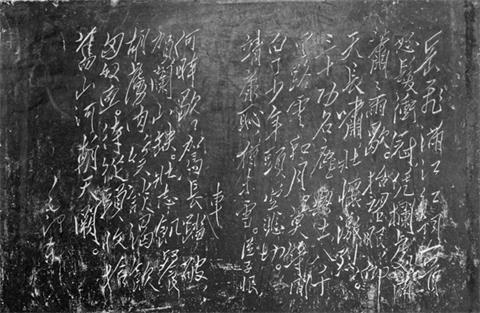 岳飛滿江紅
怒髮衝冠凭欄處瀟
瀟雨歇。抬望眼仰
天長嘯壯懷激烈。
三十功名塵與土八千
里路雲和月莫等閒
白了少年頭空悲切。
靖康恥猶未雪。臣子恨
何時滅駕長車踏破
賀蘭山缺。壯志飢餐
胡虜肉笑談渴飲
匈奴血。待從頭收拾
舊山河朝天闕。
毛澤東